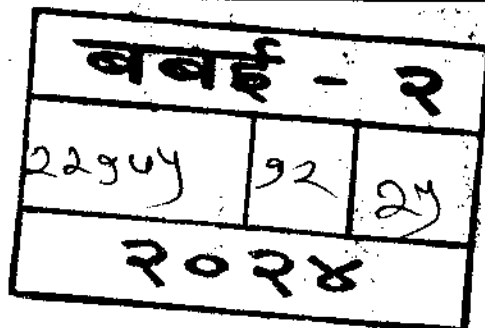 बबई - २
२२१७५ १२ २५
२०२४